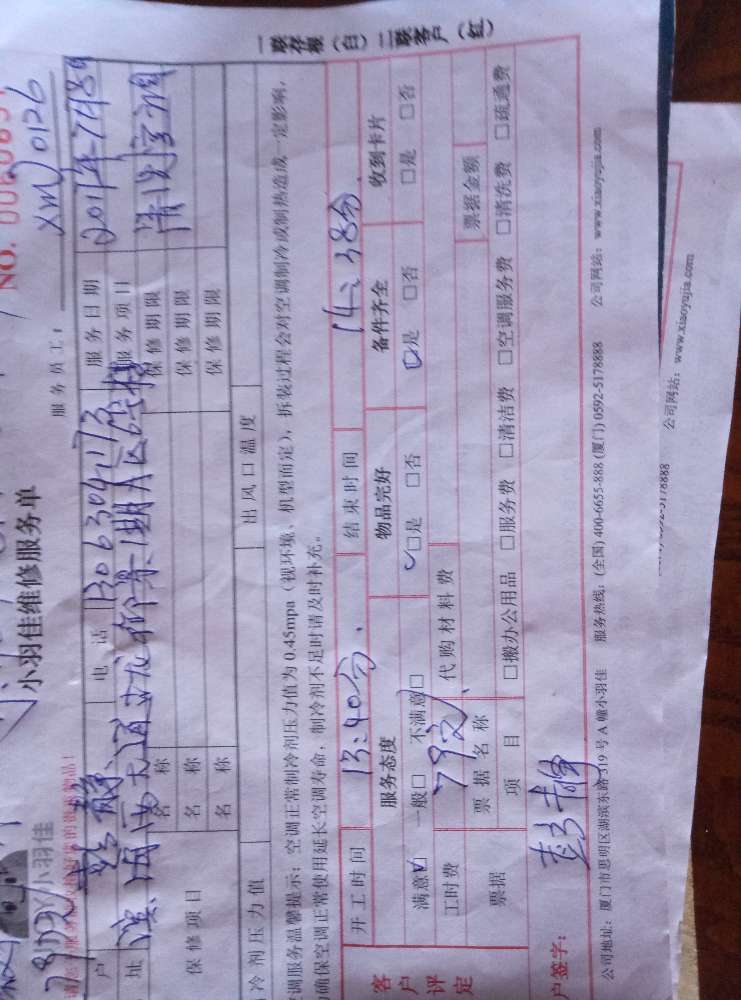 NO.
小羽佳维修服务单
服务员工: XM0126
小羽佳
户 彭静 电话 13063041173 服务日期
址 服务项目 清洗空调
保修项目 名称 保修期限
名称 保修期限
名称 保修期限
冷剂压力值 出风口温度
调服务温馨提示: 空调正常制冷剂压力值为0.45mpa (视环境、机型而定), 拆装过程会对空调制冷或制热造成一定影响,
确保空调正常使用延长空调寿命, 制冷剂不足时请及时补充。
开工时间 13:40分. 结束时间 14:38分
客户评定 服务态度 物品完好 备件齐全 收到卡片
满意☑ 一般□ 不满意□ ☑是 □否 ☑是 □否 □是 □否
工时费 79元 代购材料费
票据 票据名称 票据金额
项目 □搬办公用品 □服务费 □清洁费 □空调服务费 □清洗费 □疏通费
户签字: 彭静
公司地址: 厦门市思明区湖滨东路319号A幢小羽佳 服务热线: (全国) 400-6655-888 (厦门) 0592-5178888 公司网站: www.xiaoyujia.com
一联存根 (白) 二联客户 (红)
0592-5178888 公司网站: www.xiaoyujia.com